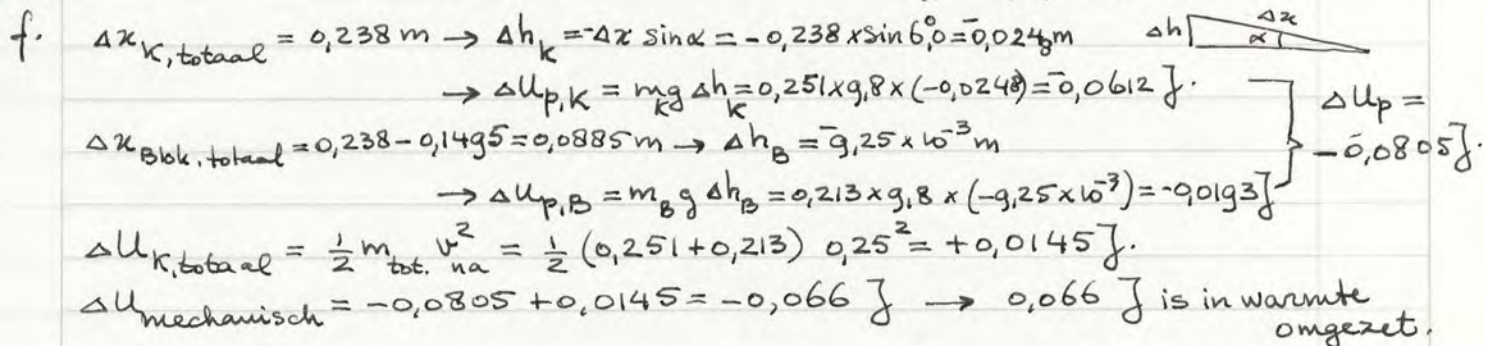 f. Δx_K,totaal = 0,238 m → Δh_k = -Δx sinα = -0,238 × sin 6,0° = -0,0248 m
Δh Δx α
→ ΔU_p,K = m_K g Δh_K = 0,251 × 9,8 × (-0,0248) = -0,0612 J.
ΔU_p = -0,0805 J.
Δx_Blok,totaal = 0,238 - 0,1495 = 0,0885 m → Δh_B = -9,25 × 10⁻³ m
→ ΔU_p,B = m_B g Δh_B = 0,213 × 9,8 × (-9,25 × 10⁻³) = -0,0193 J
ΔU_K,totaal = ½ m_tot. v_na² = ½ (0,251 + 0,213) 0,25² = +0,0145 J.
ΔU_mechanisch = -0,0805 + 0,0145 = -0,066 J → 0,066 J is in warmte
omgezet.